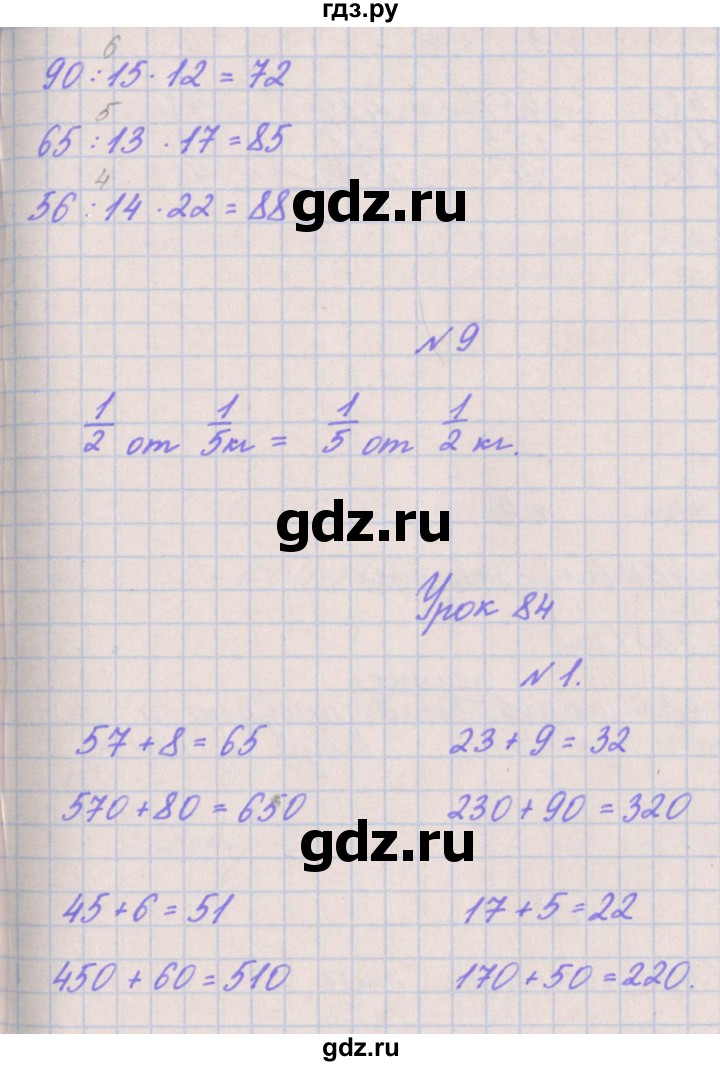 гдз.ру
6
90 : 15 · 12 = 72
5
65 : 13 · 17 = 85
4
56 : 14 · 22 = 88
gdz.ru
№ 9
1/2 от 1/5 кг = 1/5 от 1/2 кг.
gdz.ru
Урок 84
№ 1.
57 + 8 = 65 23 + 9 = 32
570 + 80 = 650 230 + 90 = 320
gdz.ru
45 + 6 = 51 17 + 5 = 22
450 + 60 = 510 170 + 50 = 220.
gdz.ru